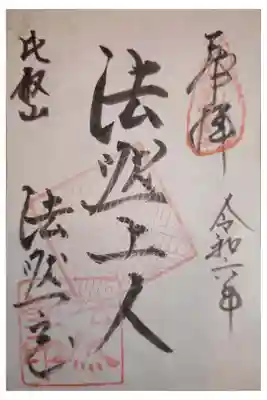 奉拝
令和六年
法然上人
比叡山
法然堂